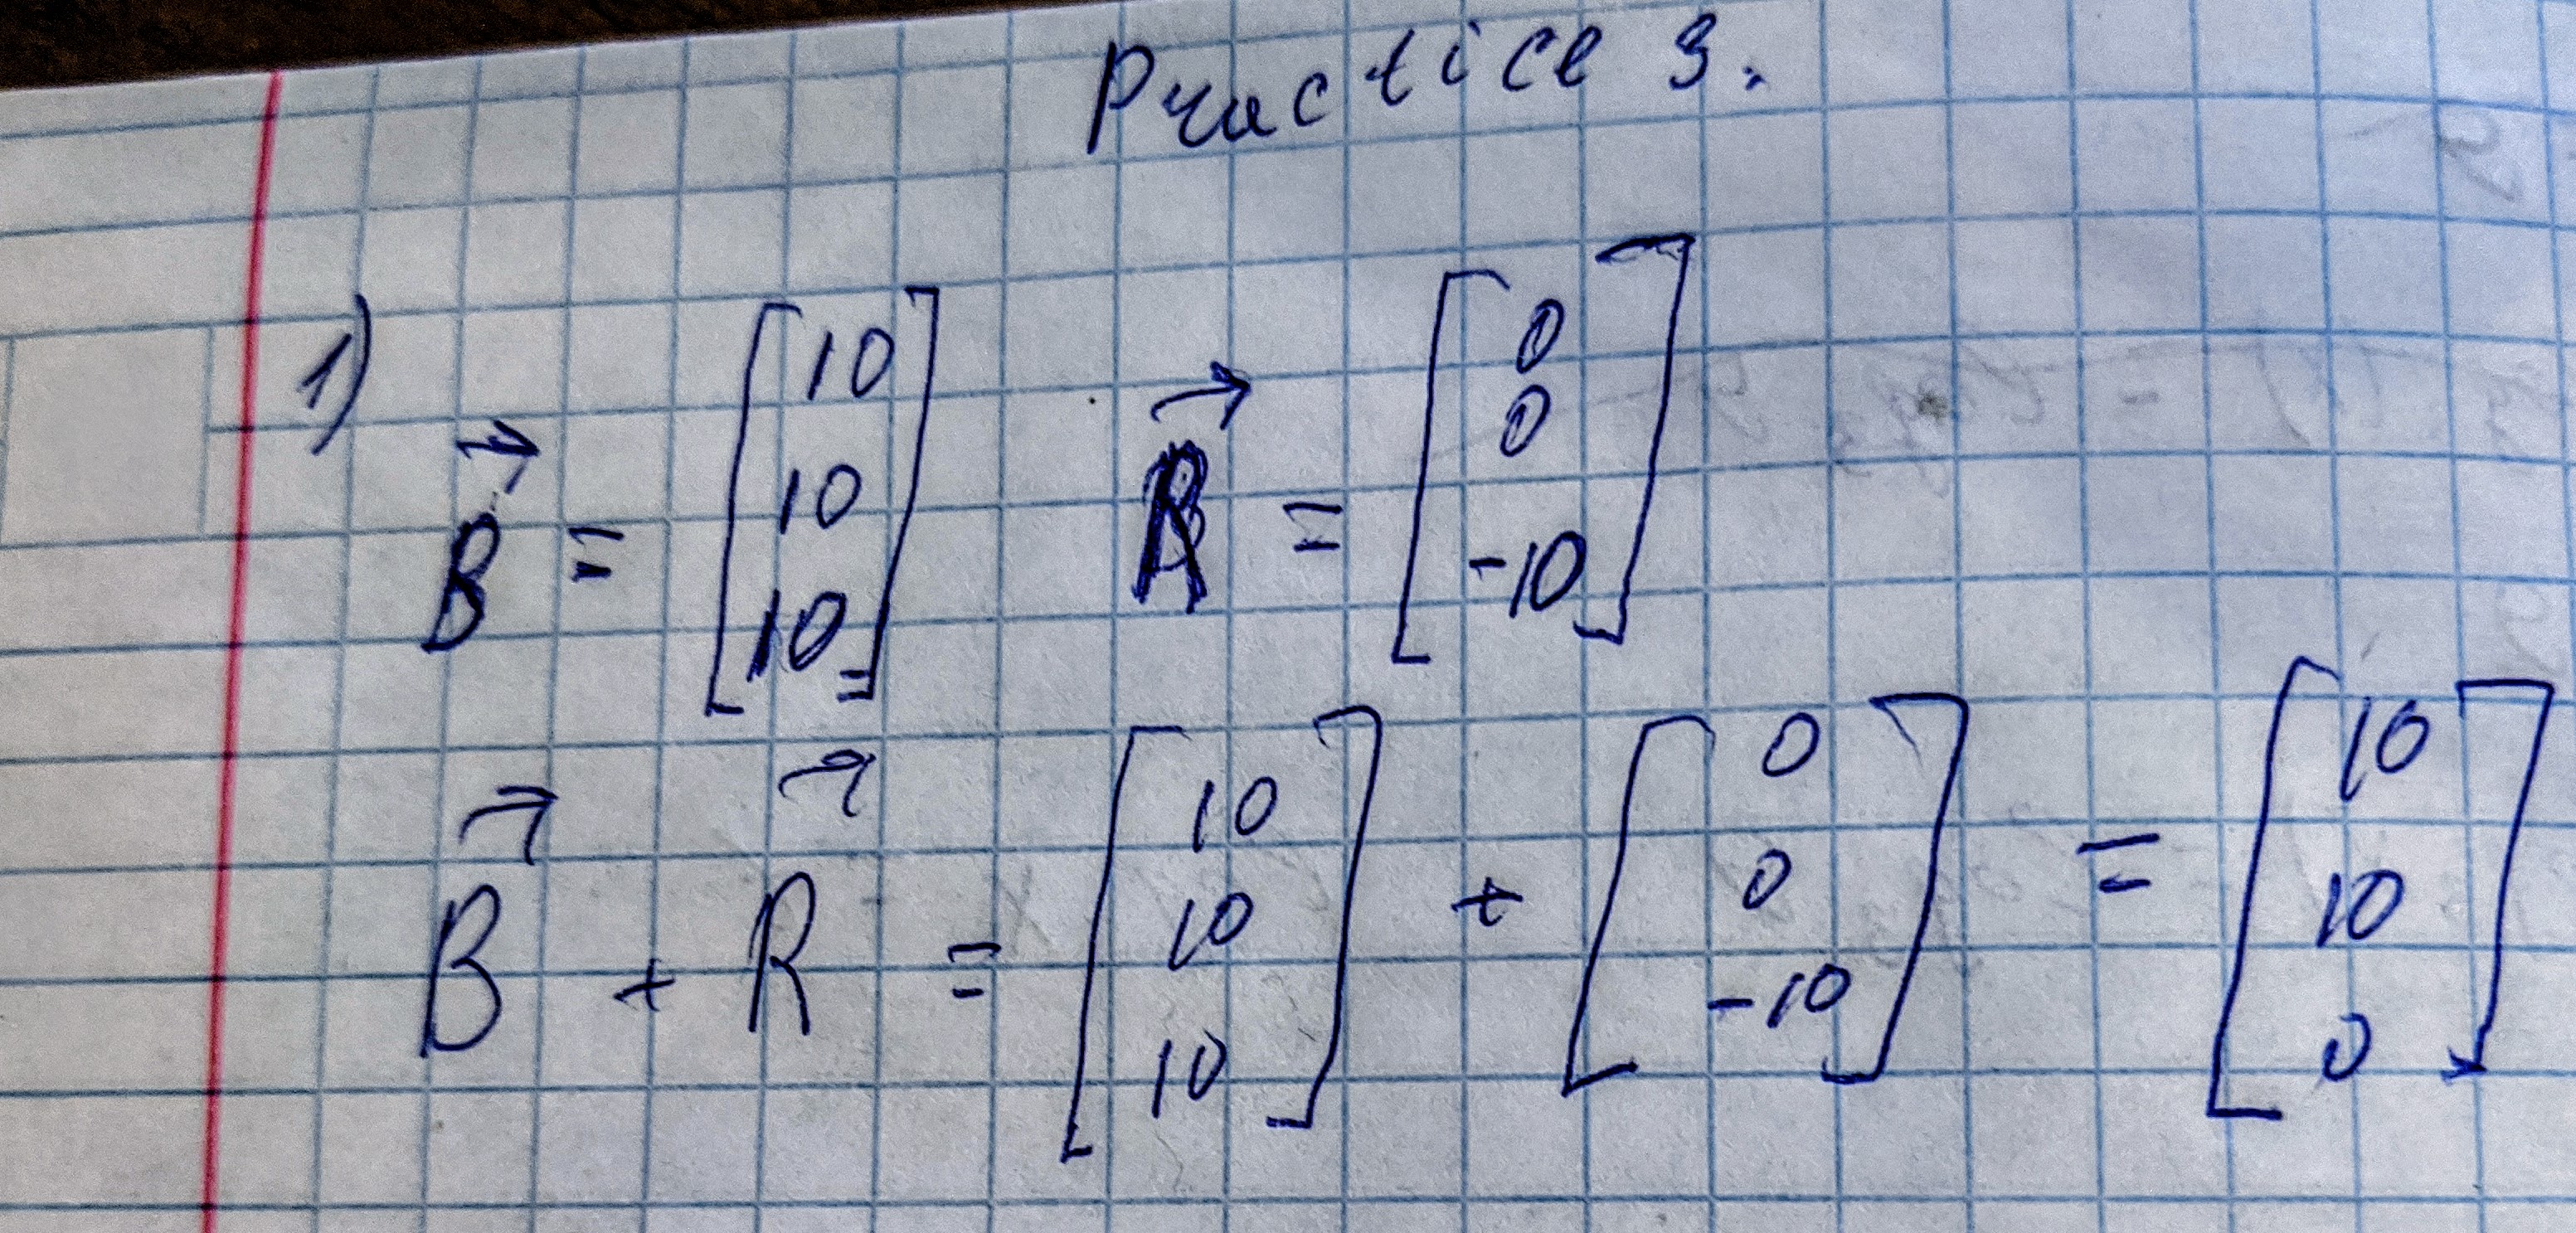 Practice 3.
1)
B⃗ = [10 10 10] R⃗ = [0 0 -10]
B⃗ + R⃗ = [10 10 10] + [0 0 -10] = [10 10 0]